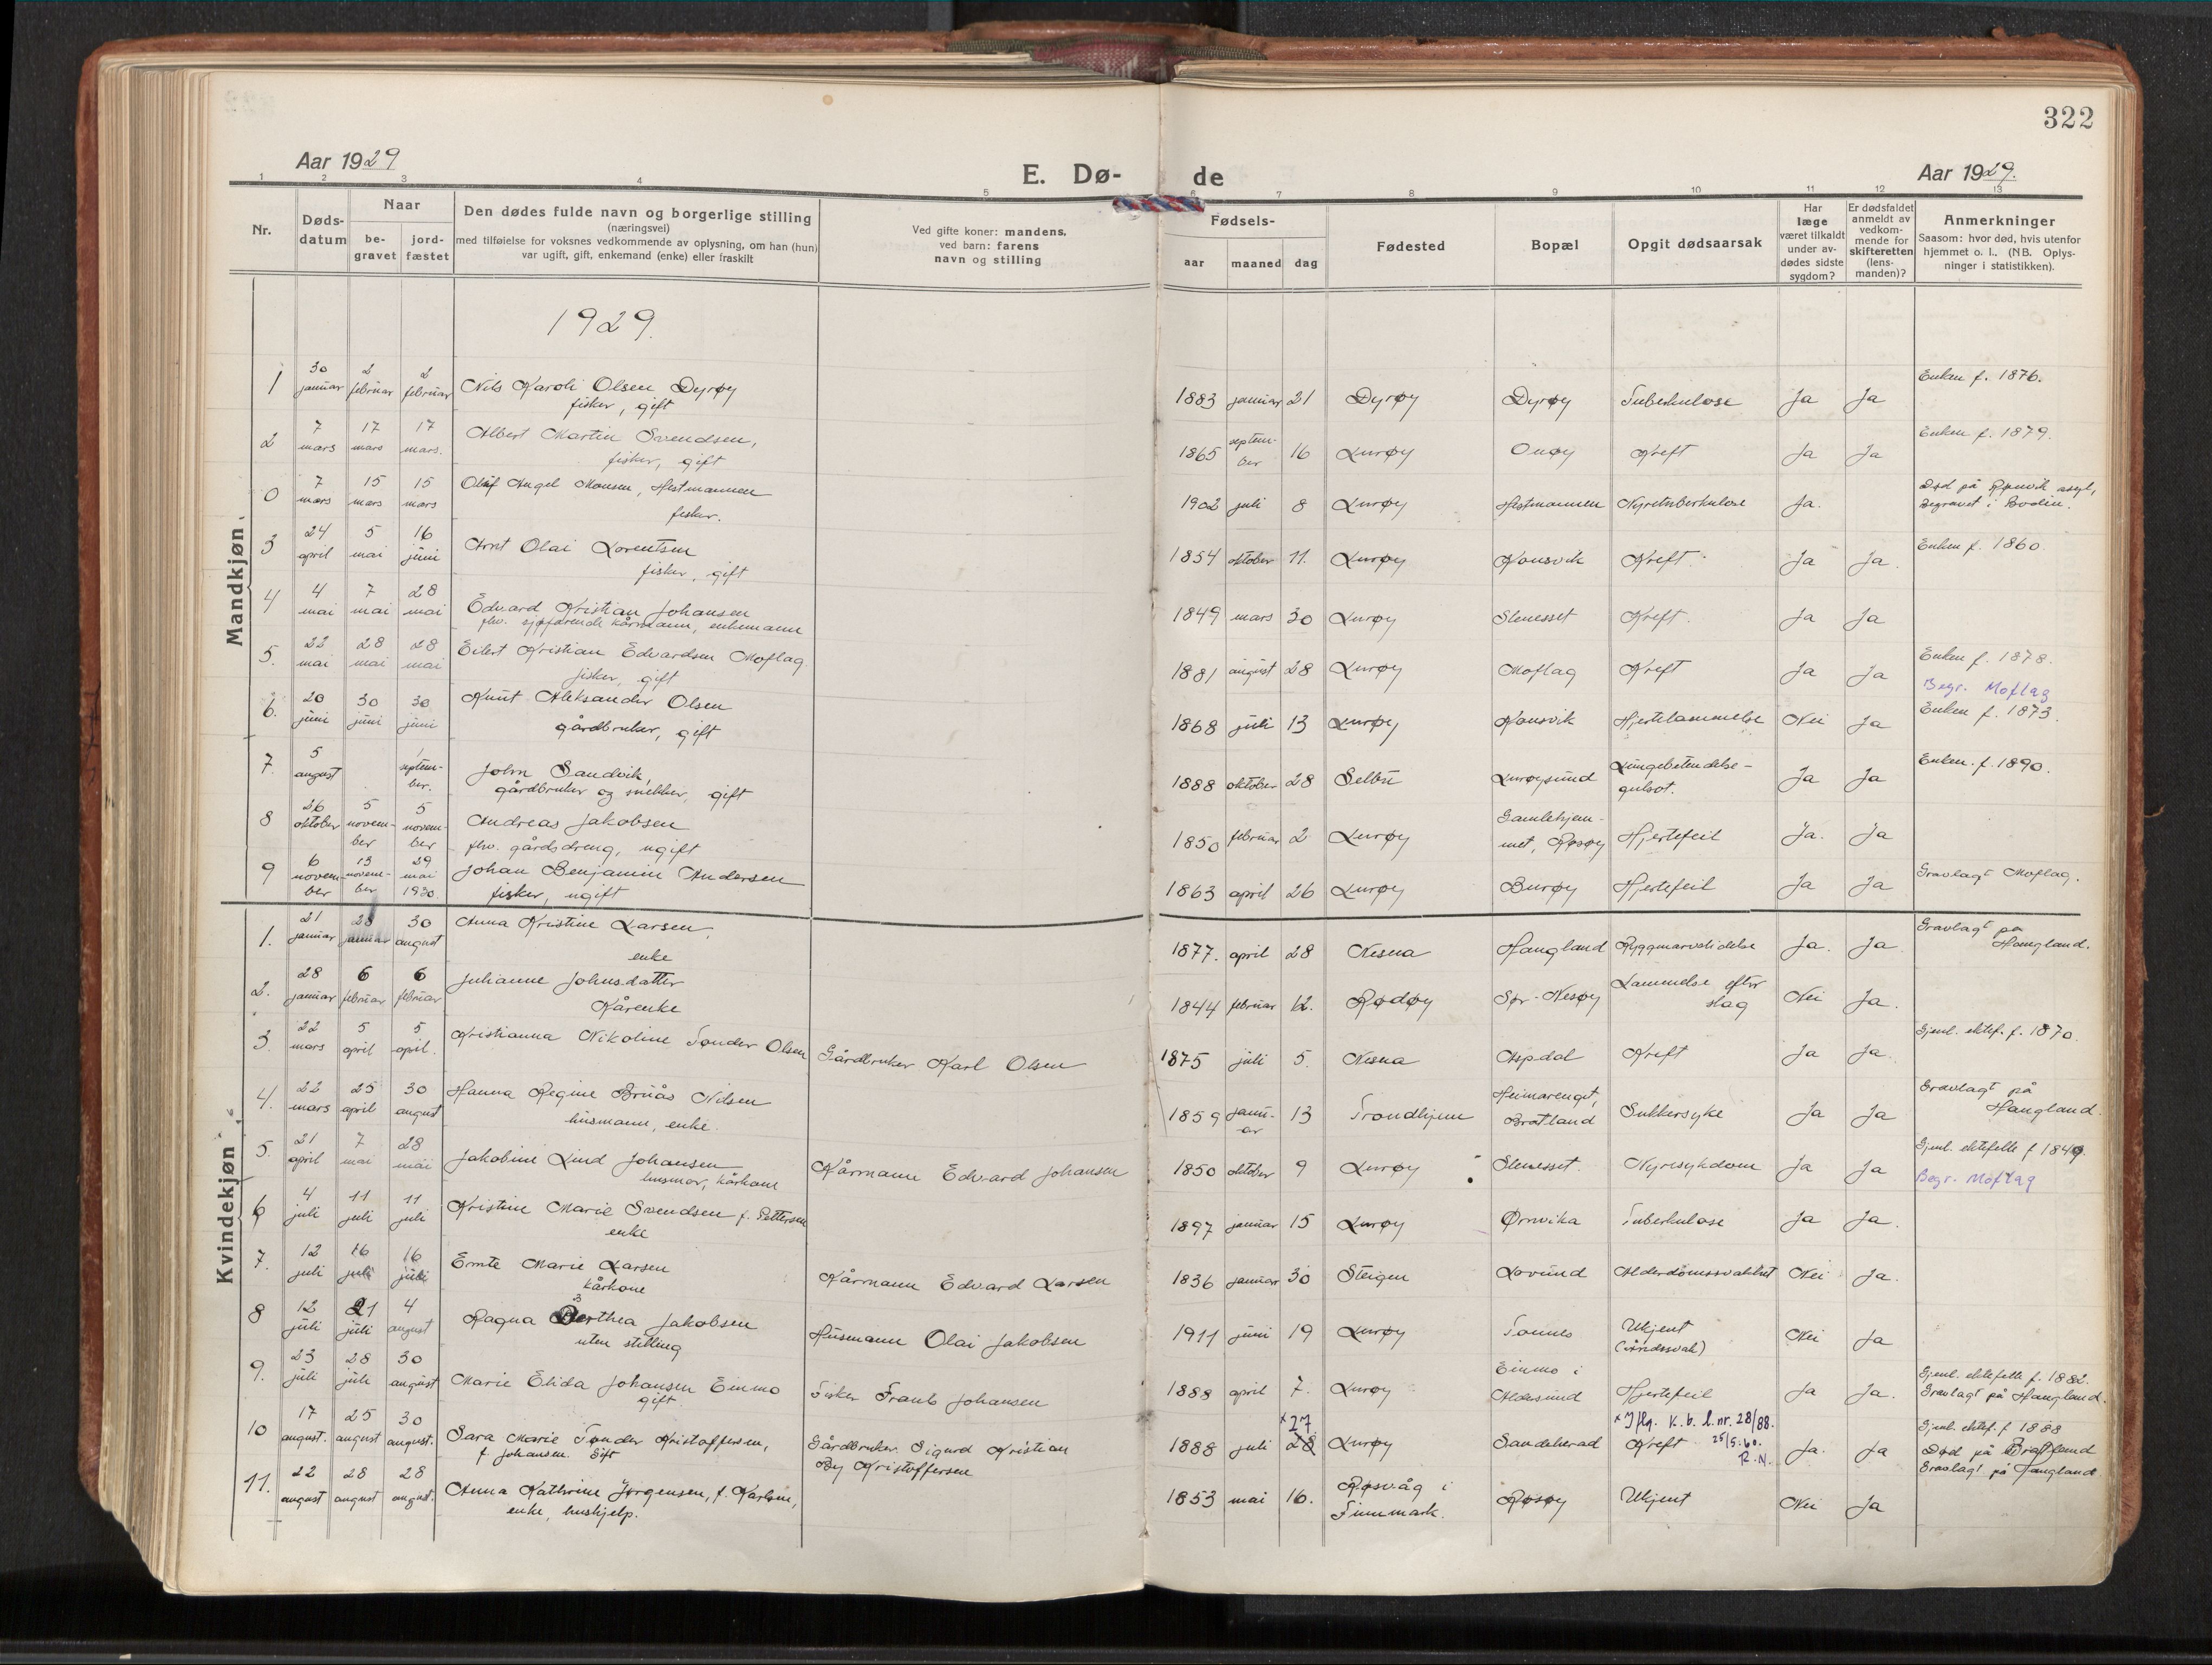 322
Aar 1929
E. Dø-
de
Aar 1929.
1 2 3 4 5 6 7 8 9 10 11 12 13
Nr.
Døds-
datum
Naar
be-
gravet
jord-
fæstet
Den dødes fulde navn og borgerlige stilling
(næringsvei)
med tilføielse for voksnes vedkommende av oplysning, om han (hun)
var ugift, gift, enkemand (enke) eller fraskilt
Ved gifte koner: mandens,
ved barn: farens
navn og stilling
Fødsels-
aar
maaned
dag
Fødested
Bopæl
Opgit dødsaarsak
Har
læge
været tilkaldt
under av-
dødes sidste
sygdom?
Er dødsfaldet
anmeldt av
vedkom-
mende for
skifteretten
(lens-
manden)?
Anmerkninger
Saasom: hvor død, hvis utenfor
hjemmet o. l., (NB. Oplys-
ninger i statistikken).
1929.
Mandkjøn.
1 30 januar 2 februar 2 februar Nils Karoli Olsen Dyrøy
fisker, gift
1883 januar 21 Dyrøy Dyrøy Tuberkulose Ja Ja Enken f. 1876.
2 7 mars 17 mars 17 mars. Albert Martin Svendsen,
fisker, gift
1865 septem-
ber 16 Lurøy Onøy Kreft Ja Ja Enken f. 1879.
0 7 mars 15 mars 15 mars Olaf Angel Monsen, Hestmannen
fisker.
1902 juli 8 Lurøy Hestmannen Nyretuberkulose Ja. Død på Rønvik asyl,
Begravet i Bodin.
3 24 april 5 mai 16 juni Arnt Olai Lorentsen
fisker, gift
1854 oktober 11. Lurøy Konsvik Kreft. Ja Ja. Enken f. 1860.
4 4 mai 7 mai 28 mai Edvard Kristian Johansen
fhv. sjøfarende kårmann, enkemann
1849 mars 30 Lurøy Stenesset Kreft. Ja Ja
5. 22 mai 28 mai 28 mai Eilert Kristian Edvardsen Moflag
fisker, gift
1881 august 28 Lurøy Moflag Kreft Ja Ja Enken f. 1878.
Begr. Moflag
6. 20 juni 30 juni 30 juni Knut Aleksander Olsen
gårdbruker, gift
1868 juli 13 Lurøy Konsvik Hjertelammelse Nei Ja Enken f. 1873.
7. 5 august 1 septem-
ber. John Sandvik,
gårdbruker og snekker, gift
1888 oktober 28 Selbu Lurøysund Lungebetendelse -
gulsot. Ja Ja Enken. f. 1890.
8 26 oktober 5 novem-
ber 5 novem-
ber Andreas Jakobsen
fhv. gårdsdreng, ugift
1850 februar 2 Lurøy Gamlehjem-
met, Røsøy Hjertefeil Ja. Ja
9 6 novem-
ber 13 novem-
ber 29 mai
1930. Johan Benjamin Andersen
fisker, ugift
1863 april 26 Lurøy Burøy Hjertefeil Ja Ja Gravlagt Moflag.
Kvindekjøn.
1. 21 januar 28 januar 30 august Anna Kristine Larsen,
enke
1877. april 28 Nesna Haugland Ryggmarvslidelse Ja. Ja Gravlagt på
Haugland.
2. 28 januar 6 februar 6 februar Julianne Johnsdatter
Kårenke
1844 februar 12. Rødøy Sør-Nesøy Lammelse efter
slag Nei Ja.
3. 22 mars 5 april 5 april. Kristianna Nikoline Tønder Olsen Gårdbruker Karl Olsen
1875 juli 5. Nesna Aspdal Kreft Ja Ja. Gjenl. ektef. f. 1870.
4. 22 mars 25 april 30 august Hanna Regine Bruås Nilsen
husmann, enke.
1859 janu-
ar 13 Trondhjem Heimarenget,
Bratland Sukkersyke Ja Ja Gravlagt på
Haugland.
5. 21 april 7 mai 28 mai Jakobine Lind Johansen
husmor, kårkone Kårmann Edvard Johansen
1850 oktober 9 Lurøy Stenesset. Nyresykdom Ja Ja Gjenl. ektefelle f 1849.
Begr. Moflag
6 4 juli 11 juli 11 juli Kristine Marie Svendsen f. Pettersen
enke
1897 januar 15 Lurøy Ørnvika Tuberkulose Ja Ja.
7. 12 juli 16 juli 16 juli Ernte Marie Larsen
kårkone Kårmann Edvard Larsen
1836 januar 30 Steigen Lovund Alderdomssvakhet Nei Ja.
8 12 juli 21 juli 4 august Ragna Berthea Jakobsen
uten stilling Husmann Olai Jakobsen
1911 juni 19 Lurøy Tonnes Ukjent
(åndssvak) Nei Ja
9. 23 juli 28 juli 30 august Marie Elida Johansen Einmo
gift. Fisker Frants Johansen
1888 april 7. Lurøy Einmo i
Aldesund Hjertefeil Ja Ja. Gjenl. ektefelle f. 1882.
Gravlagt på Haugland.
10 17 august. 25 august 30 august. Sara Marie Tønder Kristoffersen,
f. Johansen. Gift Gårdbruker Sigurd Kristian
By Kristoffersen
1888 juli x 27 28 Lurøy Sandakerad Kreft x Iflg. K.b. l.nr. 28/88.
25/5.60.
R.N. Ja. Ja Gjenl. ektef. f 1888
Død på Bratland
Gravlagt på Haugland.
11. 22 august 28 august 28 august. Anna Kathrine Jørgensen, f. Karlsen,
enke, hushjelp.
1853 mai 16. Røsvåg i
Finnmark. Røsøy Ukjent Nei Ja